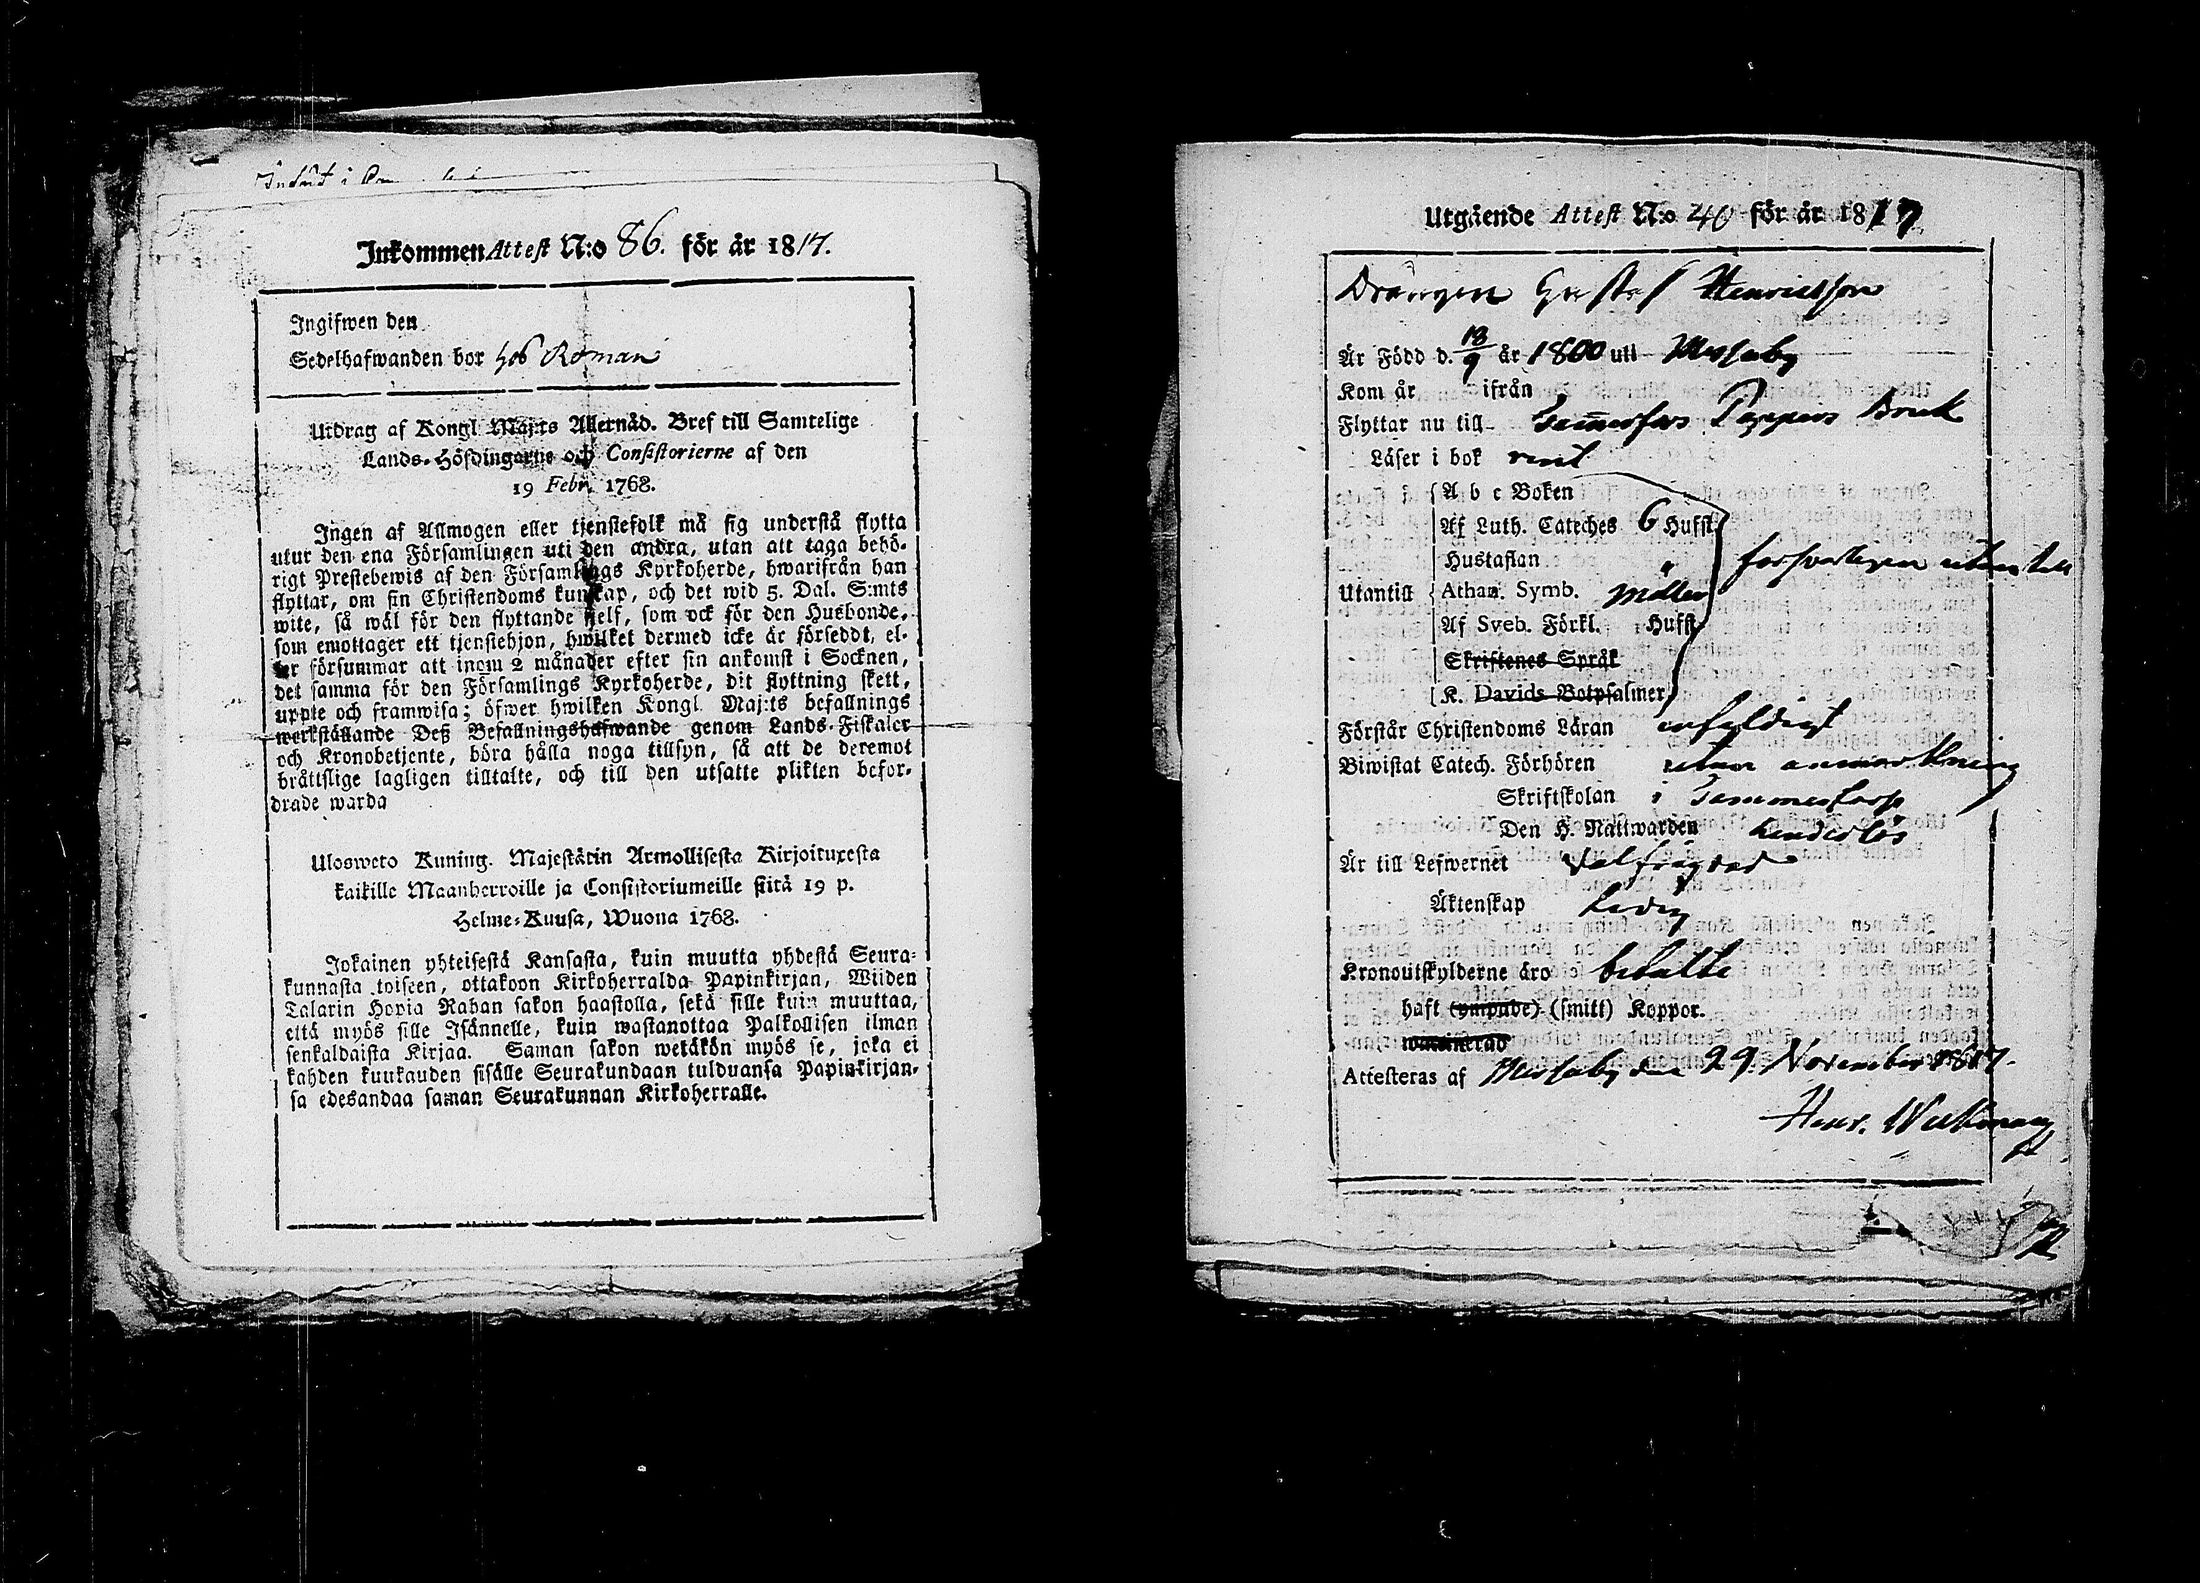 Inkommen Attest N:o 86. för år 1817.
Ingifwen den
Sedelhafwanden bor hos Roman
Utdrag af Kongl Maj:ts Allernåd. Bref till Samtelige
Lands-Höfdingarne och Consistorierne af den
19 Febr. 1768.
Ingen af Allmogen eller tjenstefolk må sig understå flytta
utur den ena Församlingen uti den andra, utan att taga behö-
rigt Prestebewis af den Församlings Kyrkoherde, hwarifrån han
flyttar, om sin Christendoms kunskap, och det wid 5. Dal. S:mts
wite, så wäl för den flyttande sjelf, som ock för den Husbonde,
som emottager ett tjenstehjon, hwilket dermed icke är försedt, el-
ler försummar att inom 2 månader efter sin ankomst i Socknen,
det samma för den Församlings Kyrkoherde, dit flyttning skett,
uppte och framwisa; öfwer hwilken Kongl. Maj:ts befallnings
werkställande Deß Befallningshafwande genom Lands-Fiskaler
och Kronobetjente, böra hålla noga tillsyn, så att de deremot
bråttslige lagligen tilltalte, och till den utsatte plikten befor-
drade warda
Ulosweto Kuning. Majestätin Armollisesta Kirjoituxesta
kaikille Maanherroille ja Consistoriumeille siitä 19 p.
Helme-Kuusa, Wuona 1768.
Jokainen yhteisestä Kansasta, kuin muutta yhdestä Seura-
kunnasta toiseen, ottakoon Kirkoherralda Papinkirjan, Wiiden
Talarin Hopia Rahan sakon haastolla, sekä sille kuin muuttaa,
että myös sille Isännelle, kuin wastanottaa Palkollisen ilman
senkaldaista Kirjaa. Saman sakon wetäkön myös se, joka ei
kahden kuukauden sisälle Seurakundaan tulduansa Papinkirjan-
sa edesandaa saman Seurakunnan Kirkoherralle.
Utgående Attest N:o 40 för år 1817
Drängen Gustaf Henricsson
Är Född d. 18/9 år 1800 uti
Kom år ifrån
Flyttar nu till Tammerfors Pappers Bruk
Läser i bok rent
A b c Boken
Af Luth. Cateches 6 Hufst.
Hustaflan
Utantill Athan. Symb.
Af Sveb. Förkl. Hufst.
Skriftenes Språk
K. Davids Botpsalmer
Förstår Christendoms Läran enfaldigt
Biwistat Catech. Förhören utan anmärkning
Skriftskolan i
Den H. Nattwarden
Är till Lefwernet välfrägdad
Äktenskap Ledig
Kronoutskylderne äro betalte
haft (ympade) (smitt) Koppor.
waccinerad
Attesteras af den 29 November 1817.
Henr.